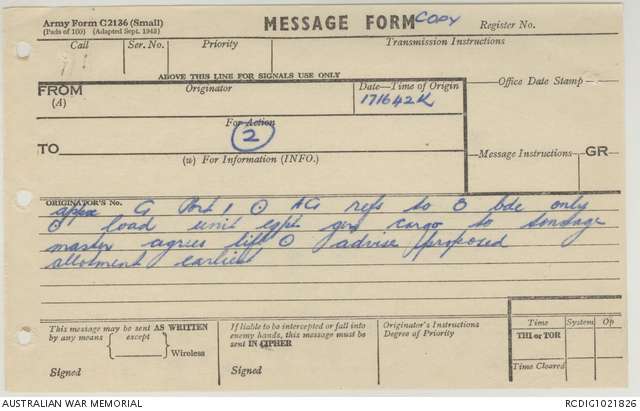 Army Form C2136 (Small)
(Pads of 100) (Adapted Sept. 1943)
MESSAGE FORM COPY
Register No.
Call
Ser. No.
Priority
Transmission Instructions
ABOVE THIS LINE FOR SIGNALS USE ONLY
FROM
(A)
Originator
Date—Time of Origin
171642K
Office Date Stamp
For Action
TO
2
(w) For Information (INFO.)
Message Instructions
GR
ORIGINATOR'S No.
G Port 1 ⊙ AG refs to 8 bde only
⊙ load unit eqpt gen cargo to tonnage
master agrees lift ⊙ advise proposed
allotment earliest
This message may be sent AS WRITTEN
by any means except
Wireless
Signed
If liable to be intercepted or fall into
enemy hands, this message must be
sent IN CIPHER
Signed
Originator's Instructions
Degree of Priority
Time
System
Op
THI or TOR
Time Cleared
AUSTRALIAN WAR MEMORIAL
RCDIG1021826